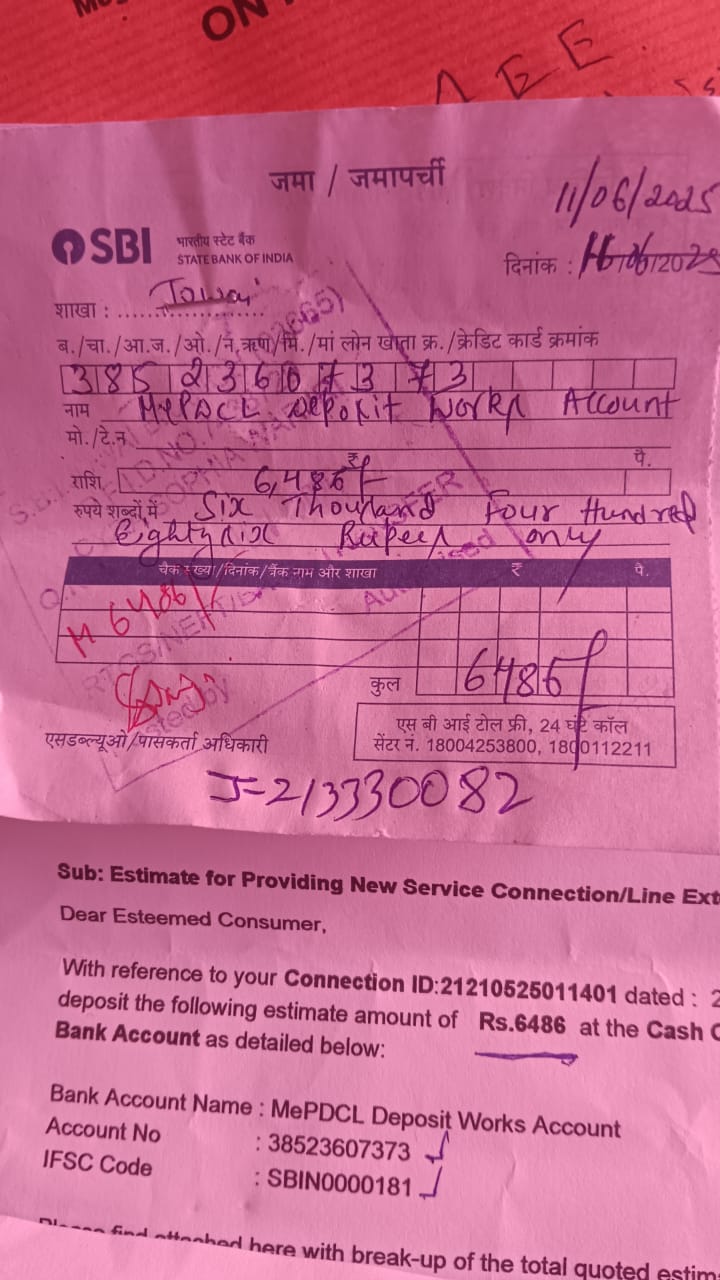 ON
A E E
जमा / जमापर्ची
11/06/2025
SBI
भारतीय स्टेट बैंक
STATE BANK OF INDIA
दिनांक :
शाखा :
ब./चा./आ.ज./ओ./न.ऋण/मि./मां लोन खाता क्र./क्रेडिट कार्ड क्रमांक
38523607373
नाम MePDCL Deposit Works Account
मो./टे.न
₹ पै.
राशि 6,486/-
रुपये शब्दों में Six Thousand Four Hundred
Eighty six Rupees only
चैक संख्या/दिनांक/बैंक नाम और शाखा ₹ पै.
6486/
कुल 6486/
एसडब्ल्यूओ/पासकर्ता अधिकारी
एस बी आई टोल फ्री, 24 घंटे कॉल
सेंटर नं. 18004253800, 1800112211
J=213330082
Sub: Estimate for Providing New Service Connection/Line Ext
Dear Esteemed Consumer,
With reference to your Connection ID:21210525011401 dated : 2
deposit the following estimate amount of Rs.6486 at the Cash C
Bank Account as detailed below:
Bank Account Name : MePDCL Deposit Works Account
Account No : 38523607373
IFSC Code : SBIN0000181
Please find attached here with break-up of the total quoted estim